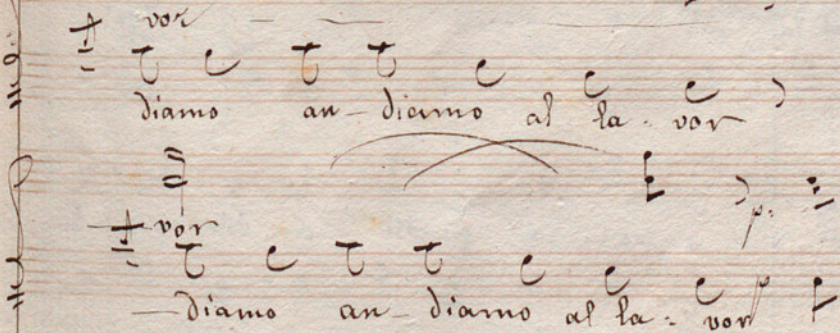 vor
diamo an - diamo al la - vor
p:
vor
- diamo an - diamo al la - vor